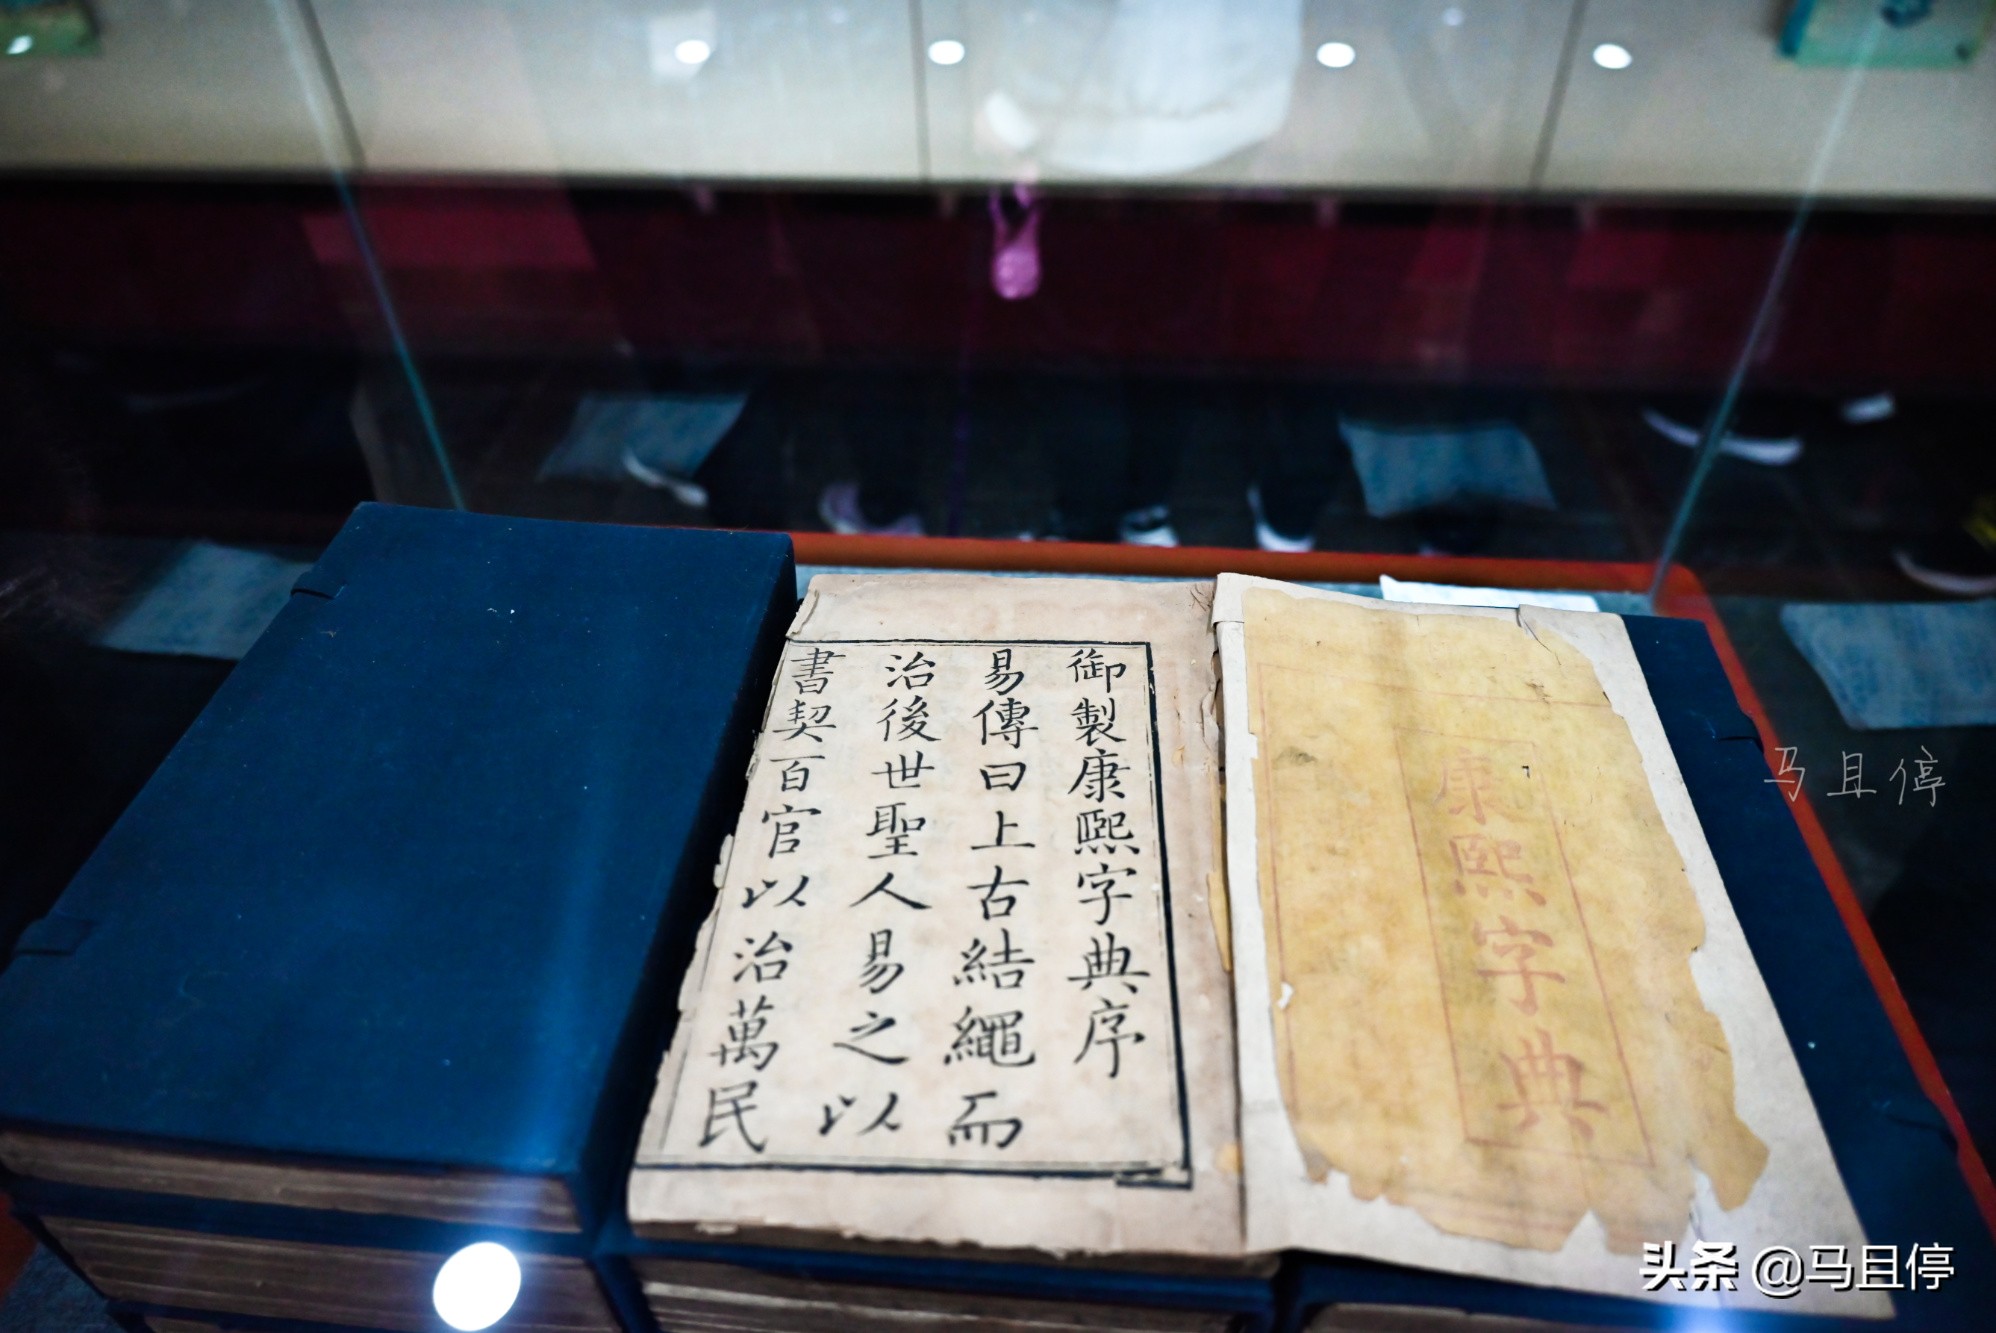 康熙字典
御製康熙字典序
易傳曰上古結繩而
治後世聖人易之以
書契百官以治萬民
马且停
头条 @马且停